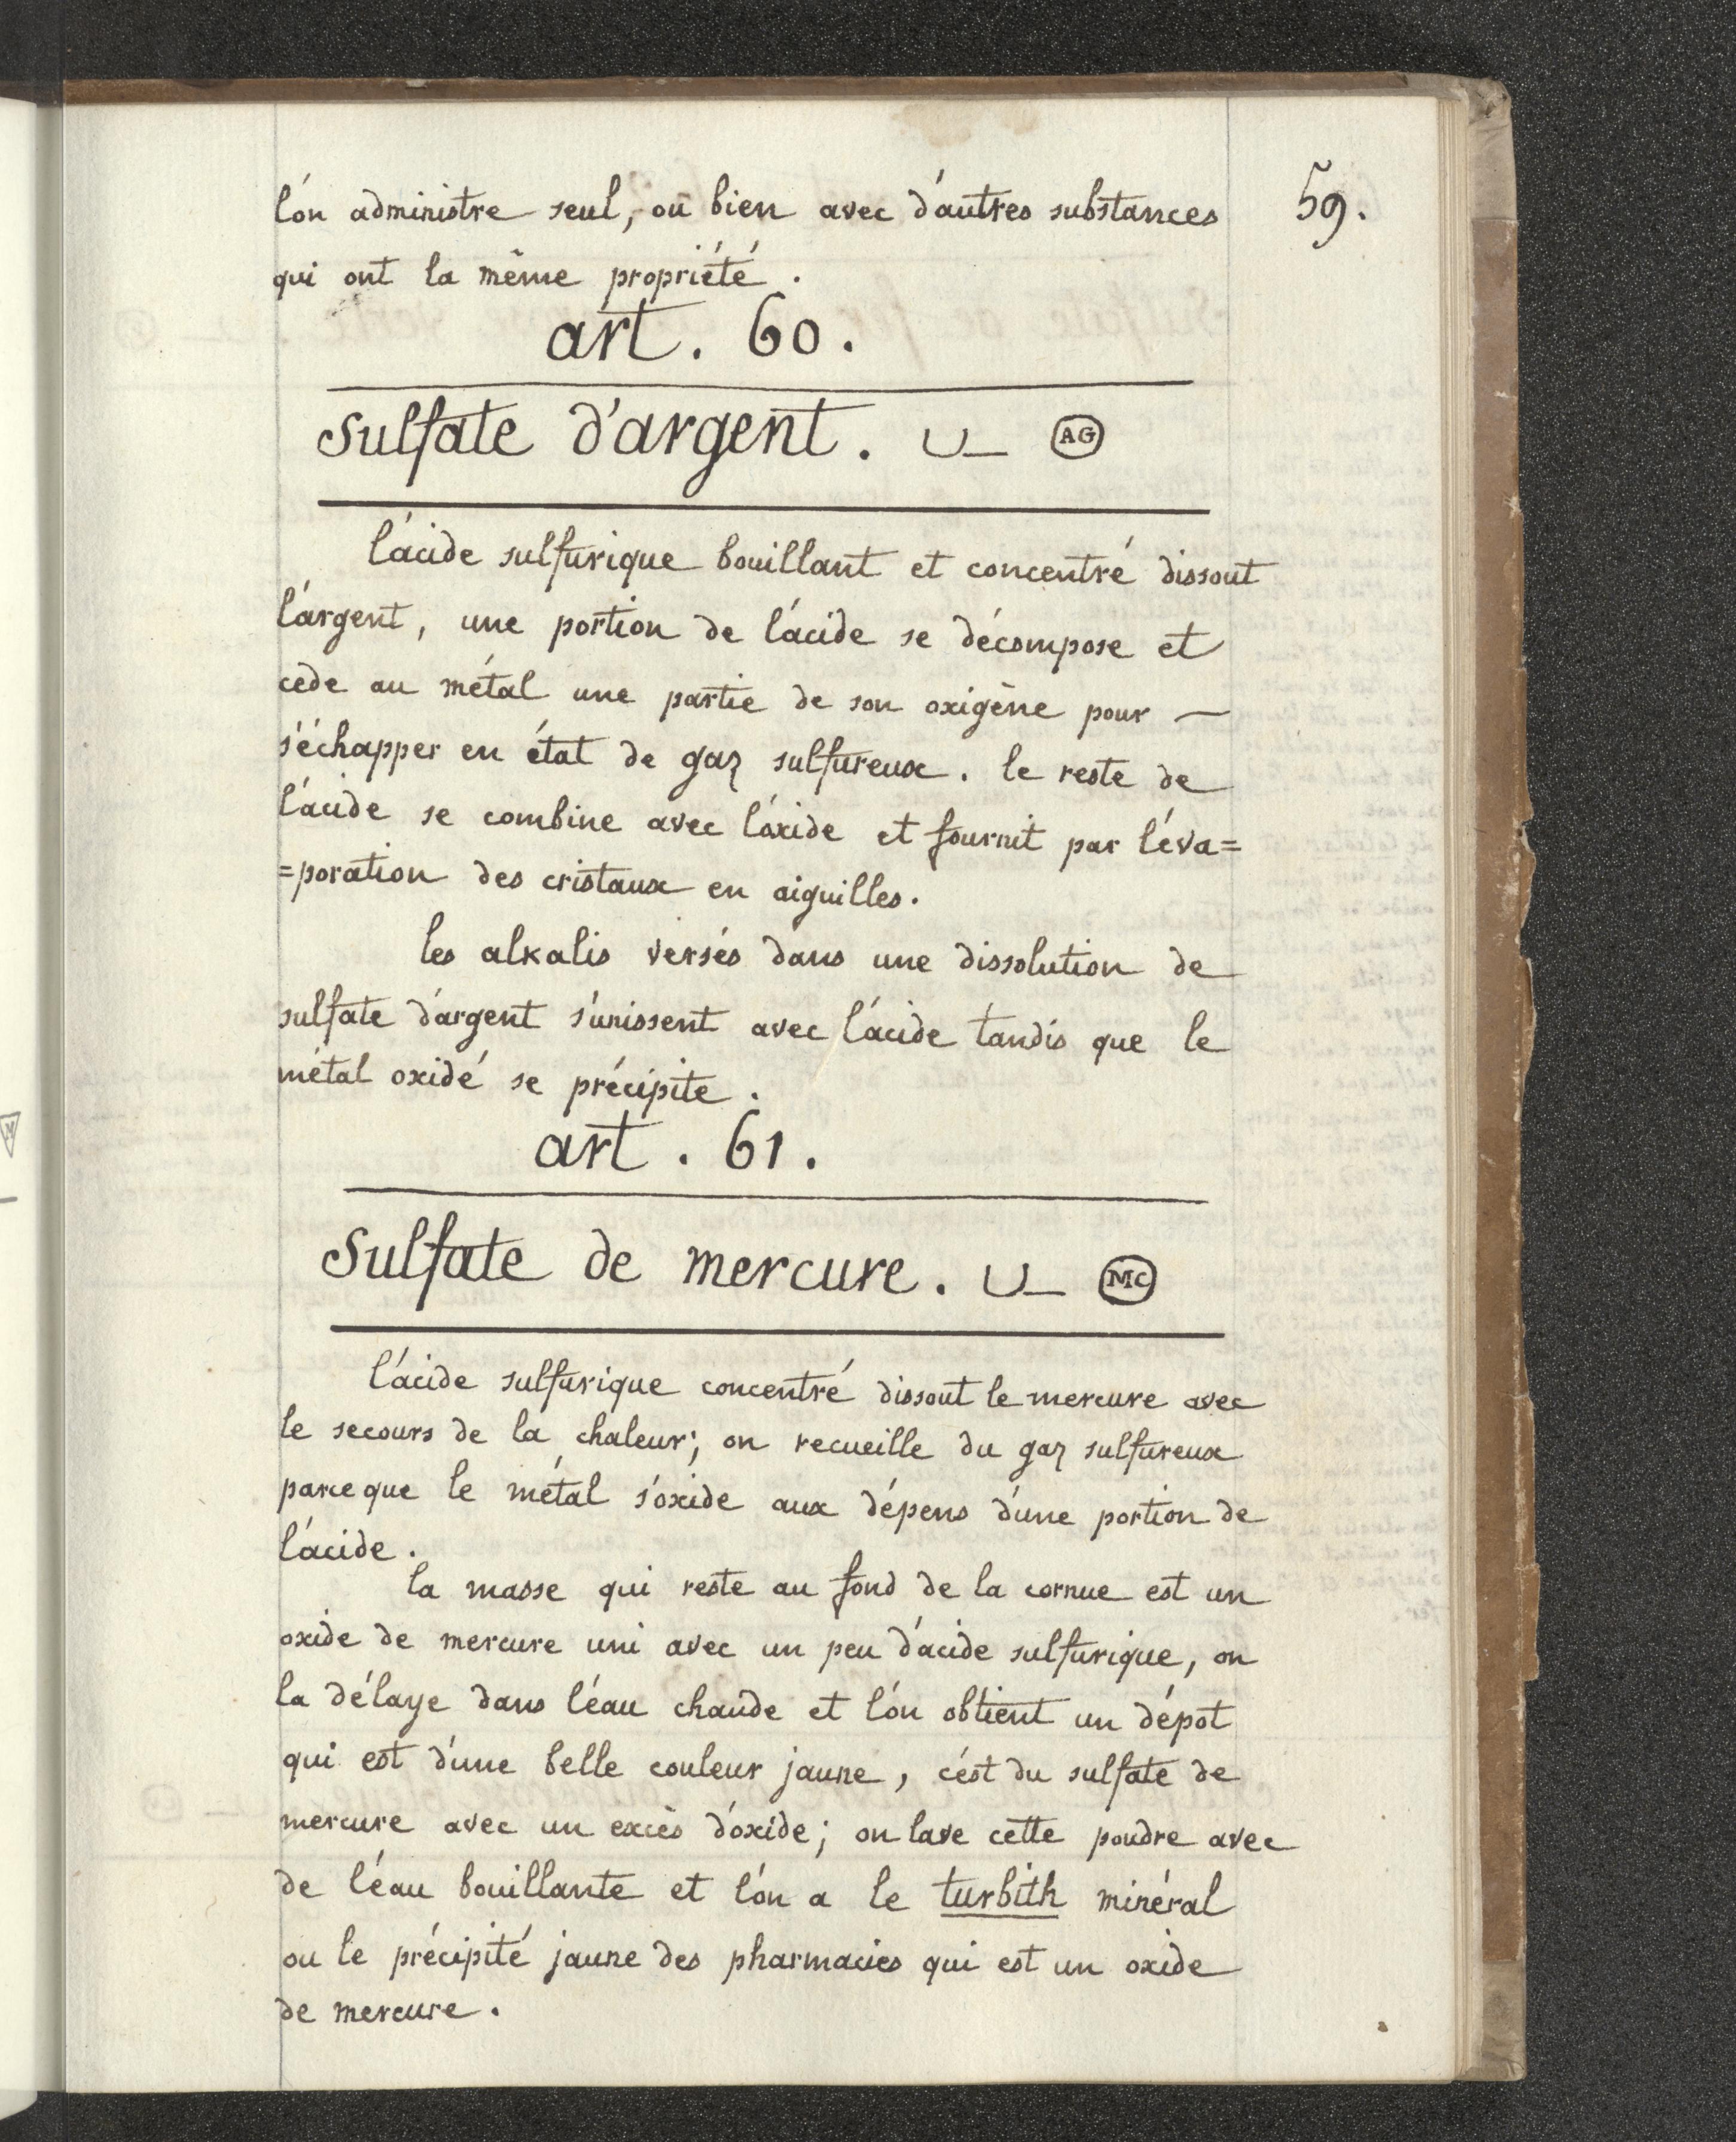 59.
l'on administre seul, ou bien avec d'autres substances
qui ont la même propriété.
art. 60.
Sulfate d'argent. AG
l'acide sulfurique bouillant et concentré dissout
l'argent, une portion de l'acide se décompose et
cede au métal une partie de son oxigène pour —
s'échapper en état de gaz sulfureux. le reste de
l'acide se combine avec l'oxide et fournit par l'éva=
=poration des cristaux en aiguilles.
les alkalis versés dans une dissolution de
sulfate d'argent s'unissent avec l'acide tandis que le
métal oxidé se précipite.
art. 61.
Sulfate de mercure. MC
l'acide sulfurique concentré dissout le mercure avec
le secours de la chaleur; on recueille du gaz sulfureux
parceque le métal s'oxide aux dépens d'une portion de
l'acide.
la masse qui reste au fond de la cornue est un
oxide de mercure uni avec un peu d'acide sulfurique, on
la délaye dans l'eau chaude et l'on obtient un dépot
qui est d'une belle couleur jaune, c'est du sulfate de
mercure avec un excès d'oxide; on lave cette poudre avec
de l'eau bouillante et l'on a le turbith minéral
ou le précipité jaune des pharmacies qui est un oxide
de mercure.